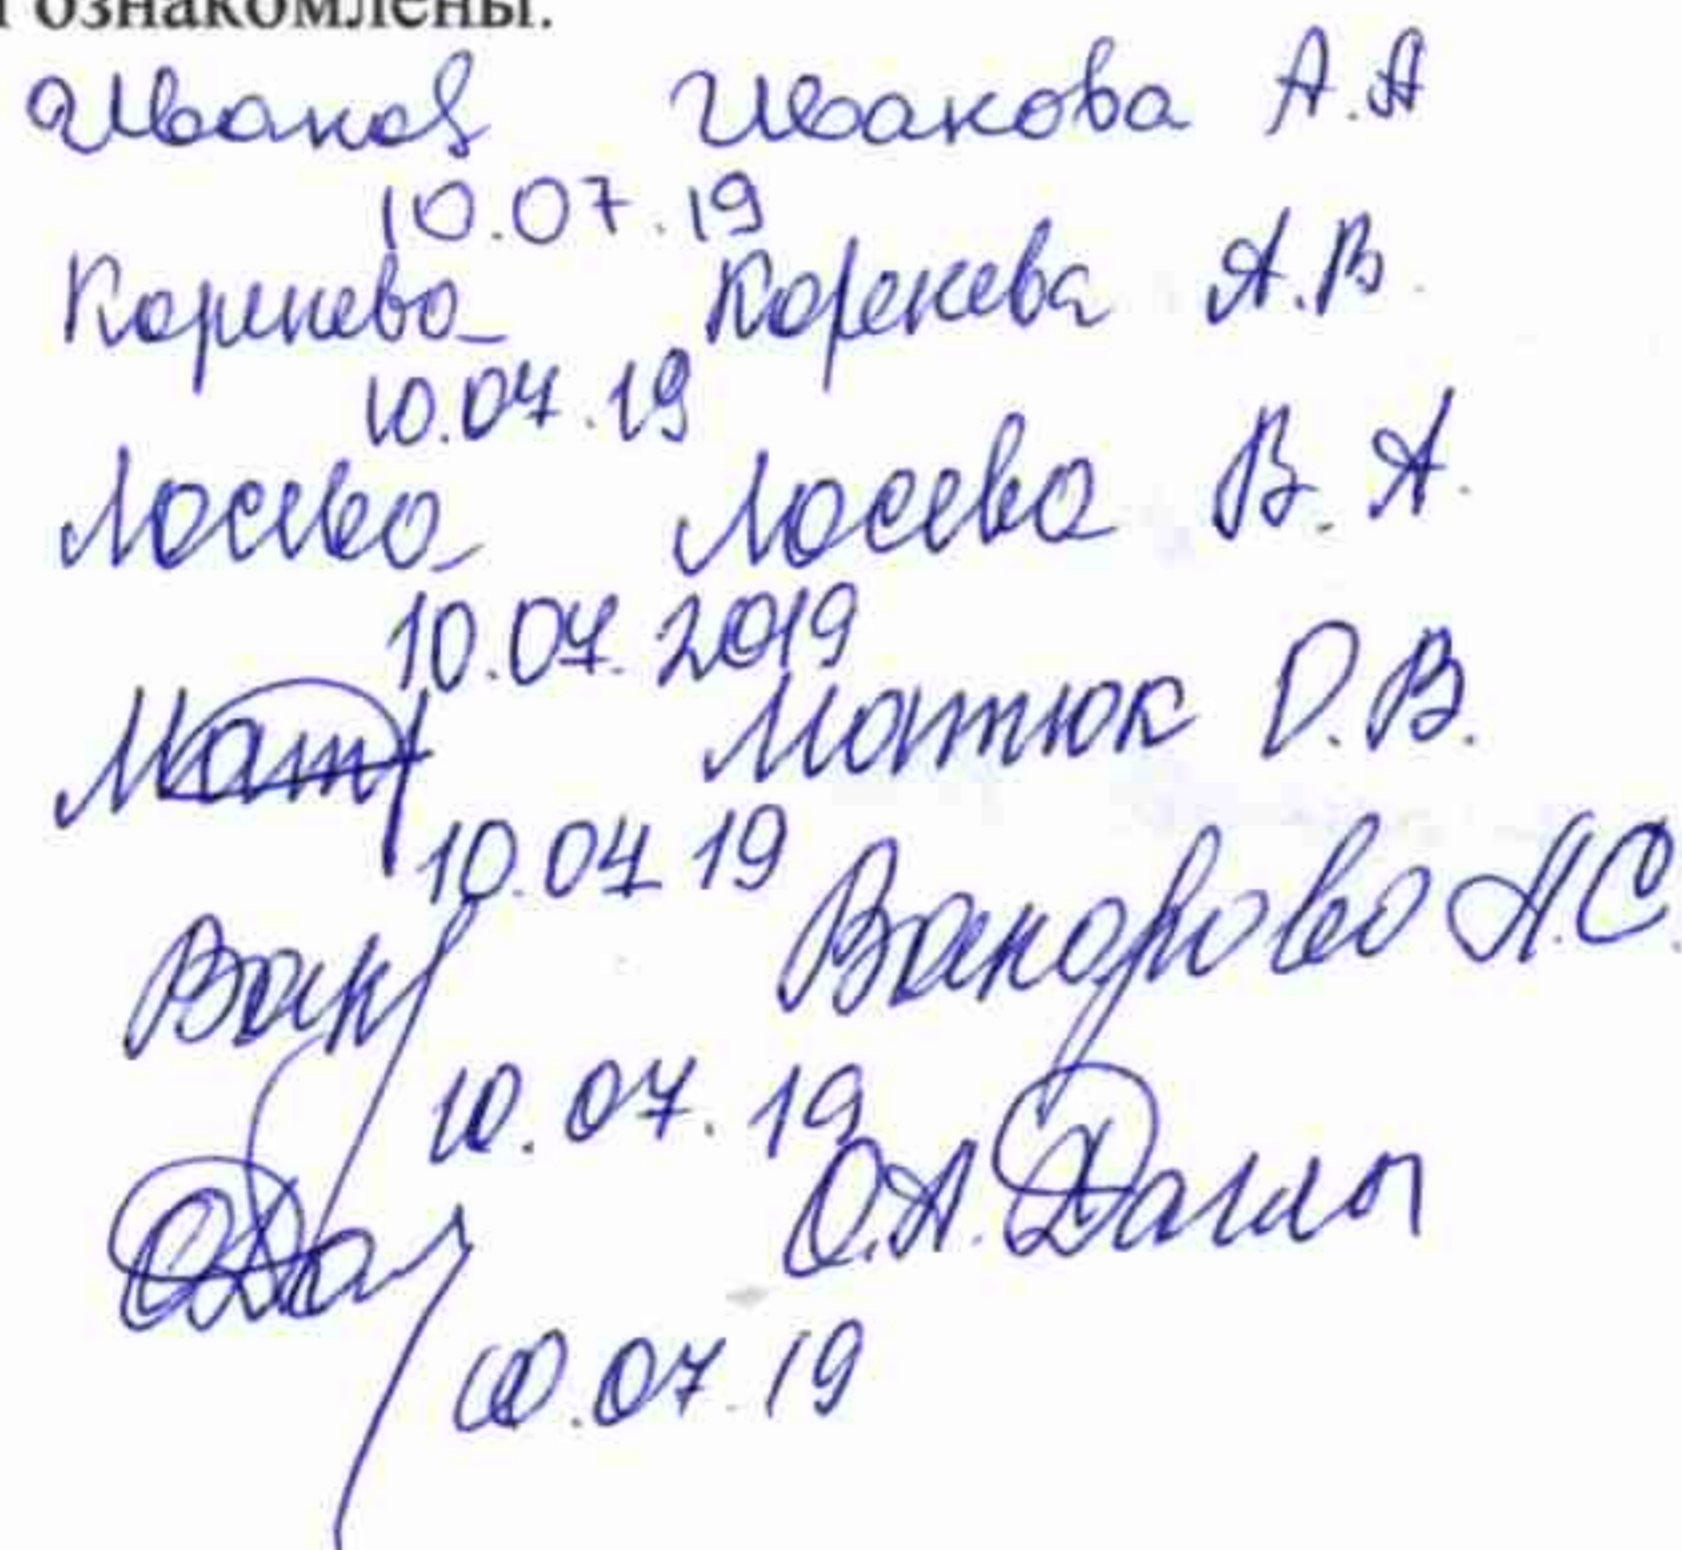 ознакомлены.
Иванов Ивакова А.А
10.07.19
Коренева Коренева А.В.
10.07.19
Лосева Лосева В.А.
10.07.2019
Мат Матюк О.В.
10.07.19
Вак А.С.
10.07.19
О.А.
10.07.19